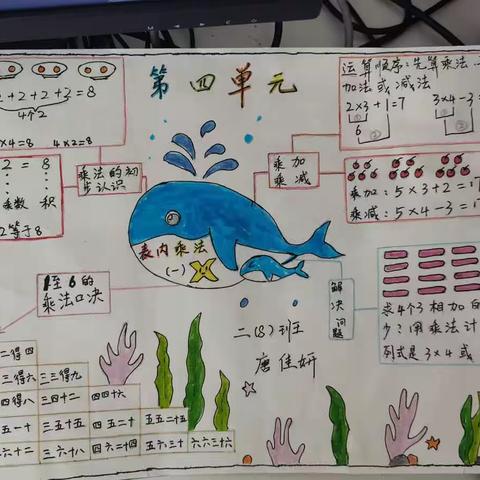 第四单元
2+2+2+2=8
4个2
×4=8 4×2=8
2 = 8
乘数 积
2等于8
乘法的初
步认识
乘加
乘减
运算顺序:先算乘法
加法或减法
2×3+1=7 3×4-3=
6
①
②
乘加:5×3+2=
乘减:5×4-3=
表内乘法
(一)
1至6的
乘法口决
解决问题
求4个3相加的
少?用乘法计
列式是3×4或
二(8)班
唐佳妍
二得四
三得六 三三得九
四得八 三四十二 四四十六
五一十 三五十五 四五二十 五五二十五
六十二 三六十八 四六二十四 五六三十 六六三十六